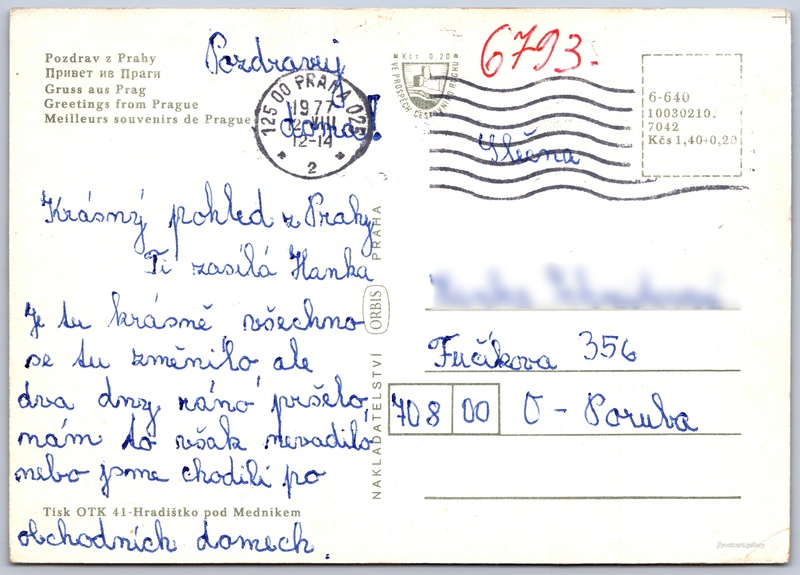 Pozdrav z Prahy
Привет из Праги
Gruss aus Prag
Greetings from Prague
Meilleurs souvenirs de Prague
Pozdravuj
doma!
125 00 PRAHA 025
1977
VIII
12-14
2
Kčs 0,20
VE PROSPĚCH CESTOVNÍHO RUCHU
6793.
6-640
10030210.
7042
Kčs 1,40+0,20
Slečna
Krásný pohled z Prahy
Ti zasílá Hanka
Je tu krásně, všechno
se tu změnilo ale
dva dny ráno pršelo,
nám to však nevadilo
nebo jsme chodili po
obchodních domech.
Fučíkova 356
708 00 O - Poruba
NAKLADATELSTVÍ ORBIS PRAHA
Tisk OTK 41-Hradištko pod Medníkem